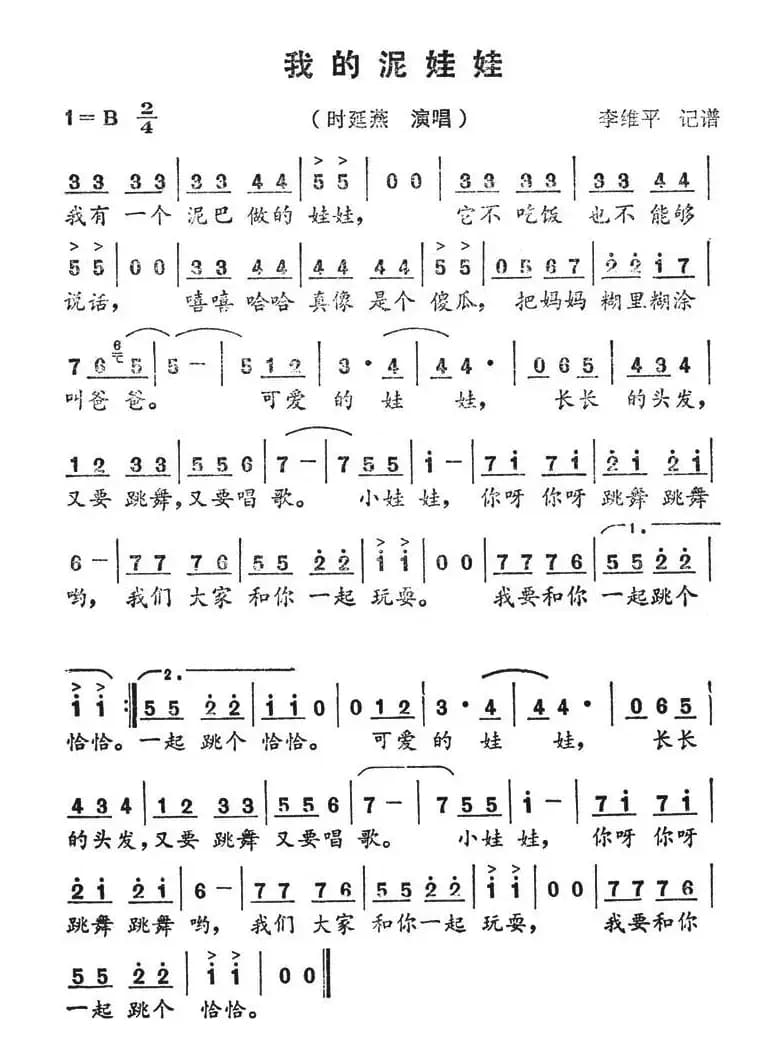 我的泥娃娃
1=B 2/4 （时延燕 演唱） 李维平 记谱
3 3 3 3 | 3 3 4 4 | 5 5 | 0 0 | 3 3 3 3 | 3 3 4 4 |
我有 一个 泥巴 做的 娃娃， 它不 吃饭 也不 能够
5 5 | 0 0 | 3 3 4 4 | 4 4 4 4 | 5 5 | 0 5 6 7 | 2̇ 2̇ 1̇ 7 |
说话， 嘻嘻 哈哈 真像 是个 傻瓜，把妈妈 糊里糊涂
7 6 5 | 5 － | 5 1 2 | 3 · 4 | 4 4 · | 0 6 5 | 4 3 4 |
叫爸 爸。 可爱 的 娃 娃， 长长 的头发，
1 2 3 3 | 5 5 6 | 7 － | 7 5 5 | 1̇ － | 7 1̇ 7 1̇ | 2̇ 1̇ 2̇ 1̇ |
又要 跳舞，又要唱 歌。 小娃 娃，你呀 你呀 跳舞 跳舞
1.
6 － | 7 7 7 6 | 5 5 2̇ 2̇ | 1̇ 1̇ | 0 0 | 7 7 7 6 | 5 5 2̇ 2̇ |
哟，我们 大家 和你 一起 玩耍。 我要和你 一起跳个
2.
1̇ 1̇ :‖ 5 5 2̇ 2̇ | 1̇ 1̇ 0 | 0 1 2 | 3 · 4 | 4 4 · | 0 6 5 |
恰恰。一起 跳个 恰恰。 可爱 的 娃 娃， 长长
4 3 4 | 1 2 3 3 | 5 5 6 | 7 － | 7 5 5 | 1̇ － | 7 1̇ 7 1̇ |
的头发，又要 跳舞 又要唱 歌。 小娃 娃， 你呀 你呀
2̇ 1̇ 2̇ 1̇ | 6 － | 7 7 7 6 | 5 5 2̇ 2̇ | 1̇ 1̇ | 0 0 | 7 7 7 6 |
跳舞 跳舞 哟，我们 大家 和你一起 玩耍， 我要和你
5 5 2̇ 2̇ | 1̇ 1̇ | 0 0 ‖
一起 跳个 恰恰。